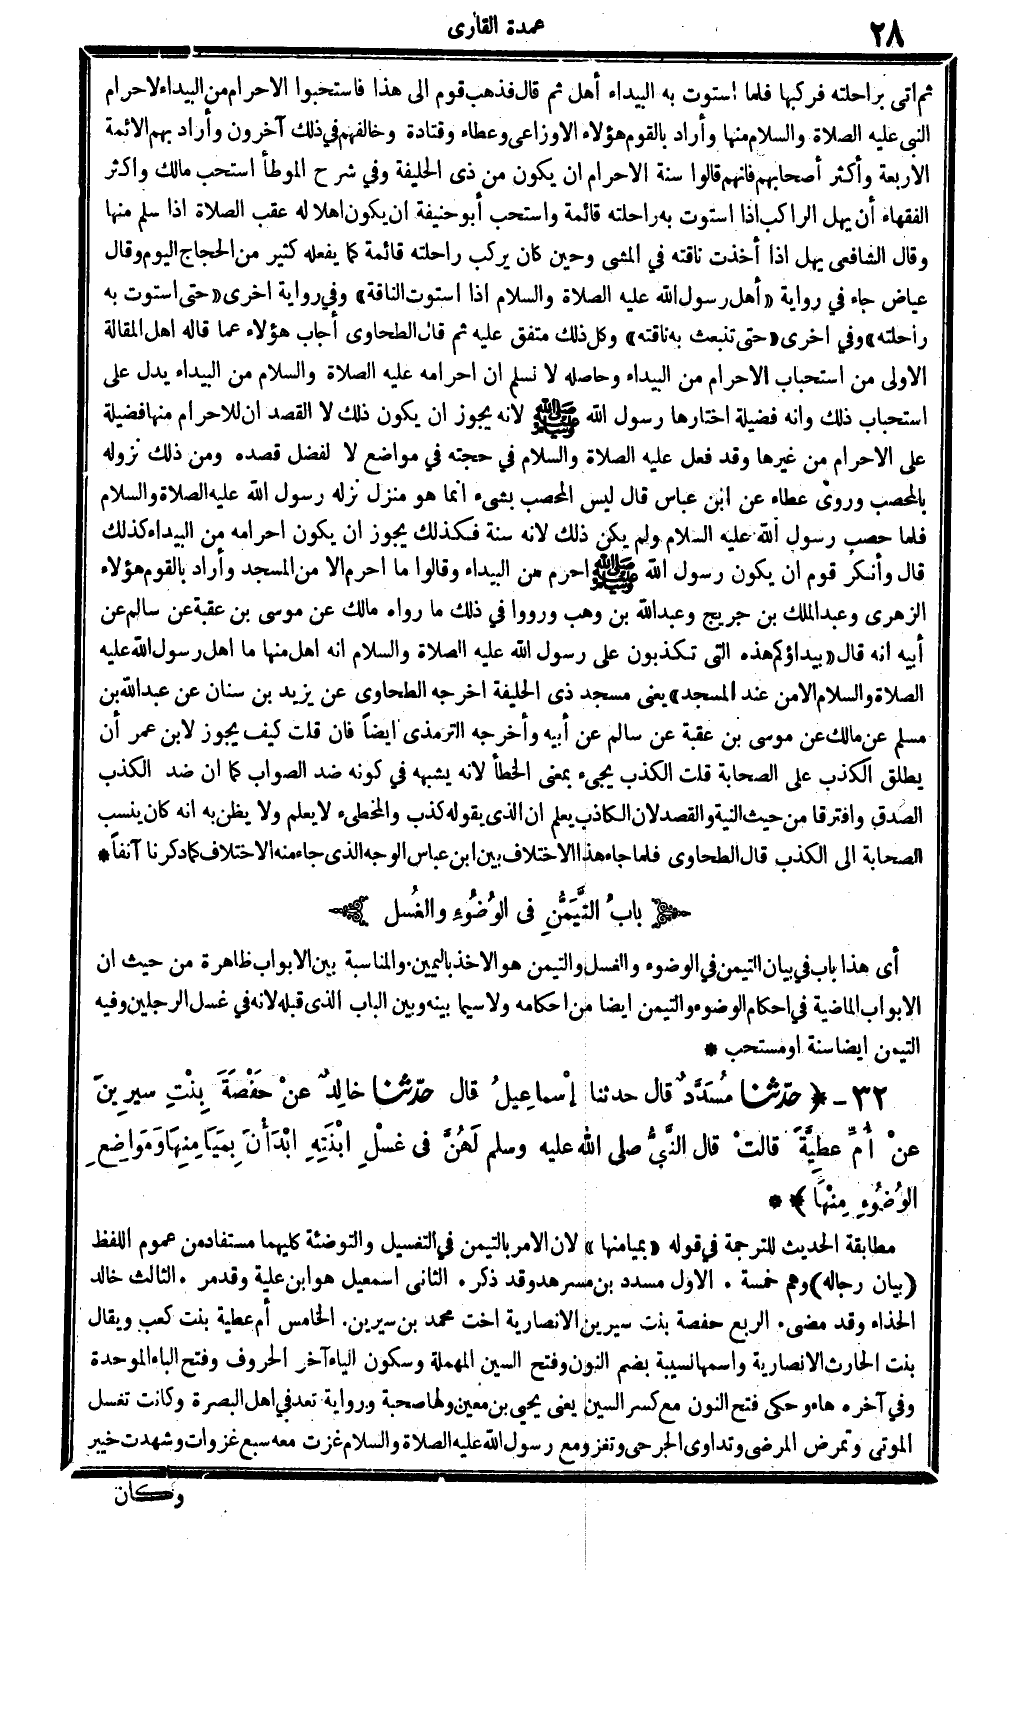 ٢٨
عمدة القارى
ثم اتى براحلته فركبها فلما استوت به البيداء أهل ثم قال فذهب قوم الى هذا فاستحبوا الاحرام من البيداء لاحرام
النبى عليه الصلاة والسلام منها وأراد بالقوم هؤلاء الاوزاعى وعطاء وقتادة وخالفهم في ذلك آخرون وأراد بهم الائمة
الاربعة وأكثر أصحابهم فانهم قالوا سنة الاحرام ان يكون من ذى الحليفة وفي شرح الموطأ استحب مالك واكثر
الفقهاء أن يهل الراكب اذا استوت به راحلته قائمة واستحب أبو حنيفة ان يكون اهلاله عقب الصلاة اذا سلم منها
وقال الشافعى يهل اذا أخذت ناقته في المشى وحين كان يركب راحلته قائمة كما يفعله كثير من الحجاج اليوم وقال
عياض جاء في رواية «أهل رسول الله عليه الصلاة والسلام اذا استوت الناقة» وفي رواية اخرى «حتى استوت به
راحلته» وفي اخرى «حتى تنبعث به ناقته» وكل ذلك متفق عليه ثم قال الطحاوى أجاب هؤلاء عما قاله اهل المقالة
الاولى من استحباب الاحرام من البيداء وحاصله لا نسلم ان احرامه عليه الصلاة والسلام من البيداء يدل على
استحباب ذلك وانه فضيلة اختارها رسول الله ﷺ لانه يجوز ان يكون ذلك لا القصد ان للاحرام منها فضيلة
على الاحرام من غيرها وقد فعل عليه الصلاة والسلام في حجته في مواضع لا لفضل قصده ومن ذلك نزوله
بالمحصب وروى عطاء عن ابن عباس قال ليس المحصب بشىء انما هو منزل نزله رسول الله عليه الصلاة والسلام
فلما حصب رسول الله عليه السلام ولم يكن ذلك لانه سنة فكذلك يجوز ان يكون احرامه من البيداء كذلك
قال وأنكر قوم ان يكون رسول الله ﷺ احرم من البيداء وقالوا ما احرم الا من المسجد وأراد بالقوم هؤلاء
الزهرى وعبد الملك بن جريج وعبد الله بن وهب ورووا في ذلك ما رواه مالك عن موسى بن عقبة عن سالم عن
أبيه انه قال «بيداؤكم هذه التى تكذبون على رسول الله عليه الصلاة والسلام انه اهل منها ما اهل رسول الله عليه
الصلاة والسلام الا من عند المسجد» يعنى مسجد ذى الحليفة اخرجه الطحاوى عن يزيد بن سنان عن عبد الله بن
مسلم عن مالك عن موسى بن عقبة عن سالم عن أبيه وأخرجه الترمذى ايضاً فان قلت كيف يجوز لابن عمر أن
يطلق الكذب على الصحابة قلت الكذب يجىء بمعنى الخطأ لانه يشبهه في كونه ضد الصواب كما ان ضد الكذب
الصدق وافترقا من حيث النية والقصد لان الكاذب يعلم ان الذى يقوله كذب والمخطىء لا يعلم ولا يظن به انه كان ينسب
الصحابة الى الكذب قال الطحاوى فلما جاء هذا الاختلاف بين ابن عباس الوجه الذى جاء منه الاختلاف كما ذكرنا آنفاً *
باب التَّيَمُّنِ فى الوُضُوءِ والغُسل
أى هذا باب في بيان التيمن في الوضوء والغسل والتيمن هو الاخذ باليمين. والمناسبة بين الابواب ظاهرة من حيث ان
الابواب الماضية في احكام الوضوء والتيمن ايضا من احكامه ولا سيما بينه وبين الباب الذى قبله لانه في غسل الرجلين وفيه
التيمن ايضا سنة او مستحب *
٣٢ - ﴿ حدّثنا مُسَدَّدٌ قال حدثنا إسماعيلُ قال حدّثنا خالِدٌ عنْ حَفْصَةَ بِنْتِ سيرِينَ
عنْ أُمِّ عطِيَّةَ قالتْ قال النَّبىُّ صلى الله عليه وسلم لَهُنَّ فى غسْلِ ابْنَتِهِ ابْدَأْنَ بِمَيَامِنِهَا وَمَوَاضِعِ
الوُضُوءِ مِنْهَا ﴾ *
مطابقة الحديث للترجمة في قوله «بميامنها» لان الامر بالتيمن في التغسيل والتوضئة كليهما مستفاد من عموم اللفظ
(بيان رجاله) وهم خمسة . الاول مسدد بن مسرهد وقد ذكر . الثانى اسمعيل هو ابن علية وقد مر . الثالث خالد
الحذاء وقد مضى . الربع حفصة بنت سيرين الانصارية اخت محمد بن سيرين. الخامس أم عطية بنت كعب ويقال
بنت الحارث الانصارية واسمها نسيبة بضم النون وفتح السين المهملة وسكون الياء آخر الحروف وفتح الباء الموحدة
وفي آخره هاء وحكى فتح النون مع كسر السين يعنى يحيى بن معين ولها صحبة ورواية تعد في اهل البصرة وكانت تغسل
الموتى وتمرض المرضى وتداوى الجرحى وتغزو مع رسول الله عليه الصلاة والسلام غزت معه سبع غزوات وشهدت خيبر
وكان